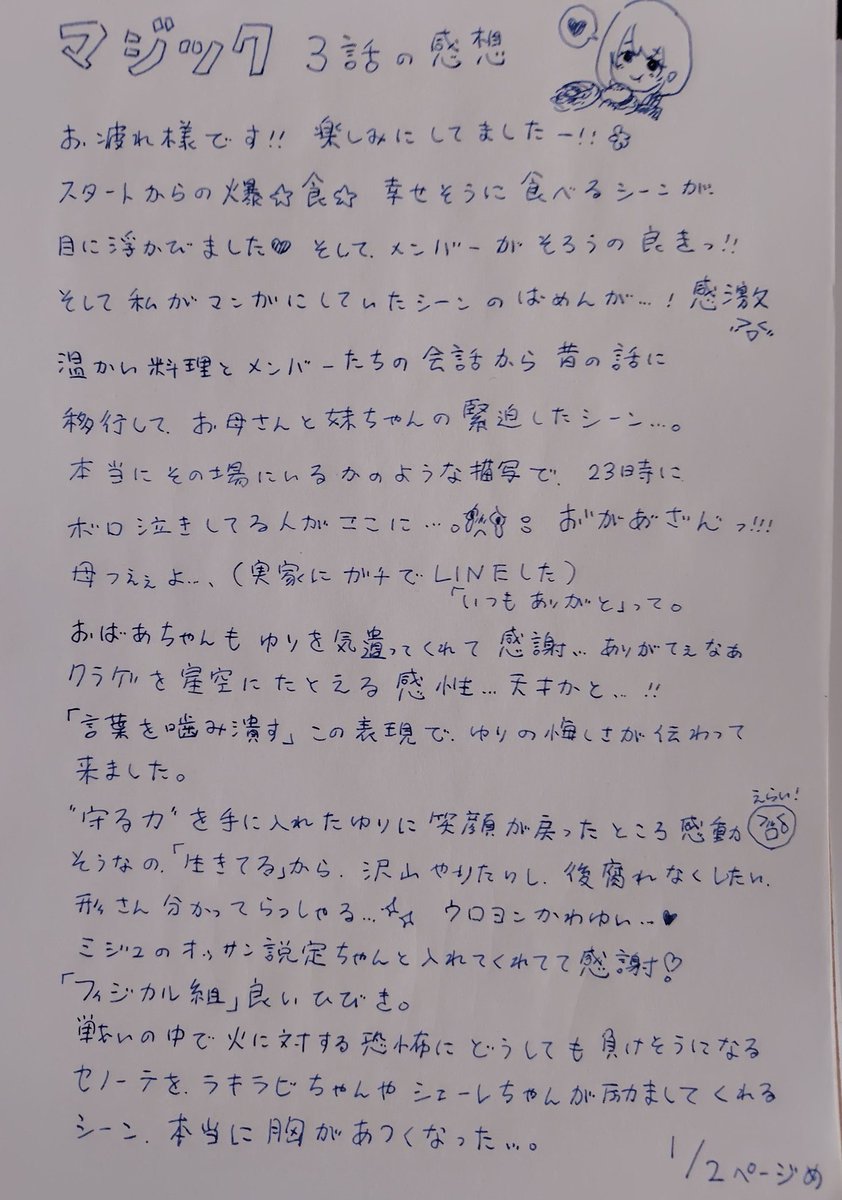 マジック 3話の感想
お疲れ様です!! 楽しみにしてましたー!!
スタートからの爆☆食☆ 幸せそうに食べるシーンが
目に浮かびました♡ そして、メンバーがそろうの良きっ!!
そして私がマンガにしていたシーンのばめんが…! 感激
温かい料理とメンバーたちの会話から昔の話に
移行して、お母さんと妹ちゃんの緊迫したシーン…。
本当にその場にいるかのような描写で、23日時に
ボロ泣きしてる人がここに…。 お゛があ゛ざんっ!!!
母つえぇよ…、(実家にガチでLINEした)
「いつもありがと」って。
おばあちゃんもゆりを気遣ってくれて感謝… ありがてぇなぁ
クラゲを星空にたとえる感性…天才かと…!!
「言葉を噛み潰す」この表現で、ゆりの悔しさが伝わって
来ました。
えらい!
"守る力"を手に入れたゆりに笑顔が戻ったところ感動
そうなの、「生きてる」から、沢山やりたいし、後腐れなくしたい、
形さん分かってらっしゃる…☆☆ ウロヨンかわゆい…♥
ミジュのオッサン設定ちゃんと入れてくれてて感謝♡
「フィジカル組」良いひびき。
戦いの中で火に対する恐怖にどうしても負けそうになる
セノーテを、ラキラビちゃんやシェーレちゃんが励ましてくれる
シーン、本当に胸があつくなった…。
1/2ページめ